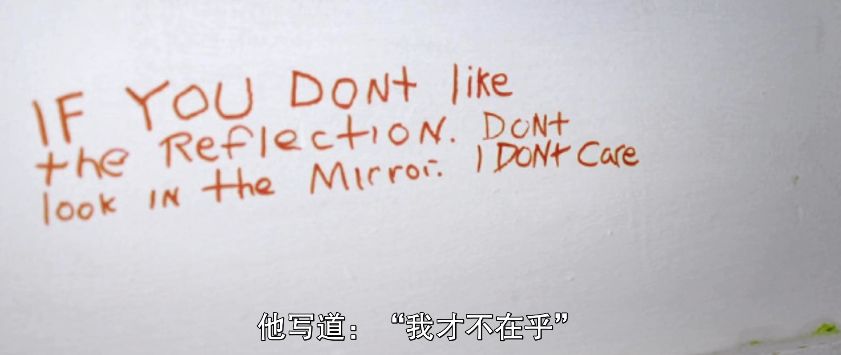 IF YOU DONt like
the Reflection. DONt
look IN the Mirror. I DONt Care
他写道：“我才不在乎”